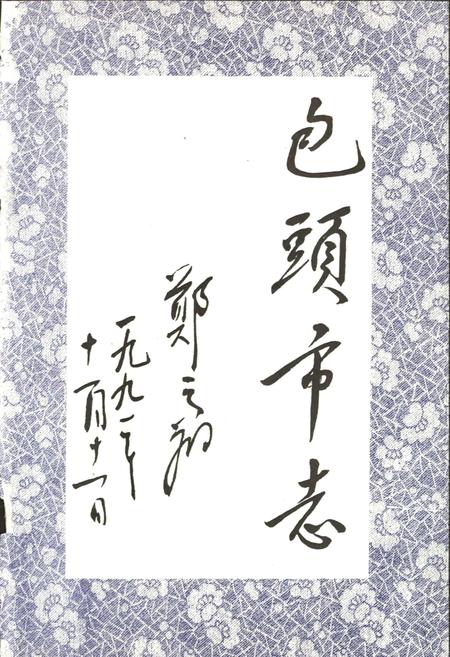 包頭市志
鄭之翔
一九九一年
十一月十一日